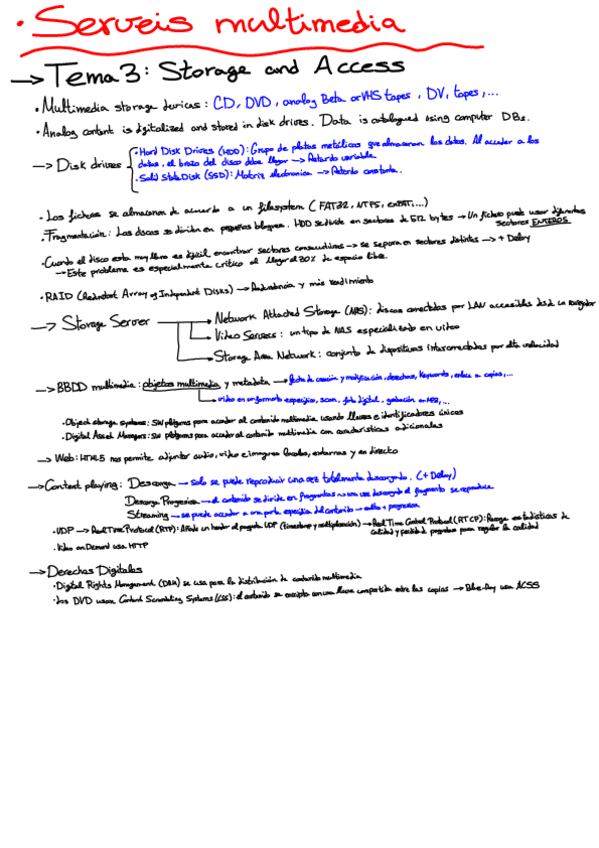 · Serveis multimedia
→ Tema 3: Storage and Access
· Multimedia storage devices: CD, DVD, analog Beta or VHS tapes, DV, tapes,...
· Analog content is digitalized and stored in disk drives. Data is catalogued using computer DBs.
→ Disk drives
· Hard Disk Drives (HDD): Grupo de platos metálicos que almacenan los datos. Al acceder a los
datos, el brazo del disco debe llegar → Retardo variable.
· Solid State Disk (SSD): Matriz electronica → Retardo constante.
· Los ficheros se almacenan de acuerdo a un filesystem (FAT32, NTFS, exFAT,...)
· Fragmentación: Los discos se dividen en pequeños bloques. HDD se divide en sectores de 512 bytes → Un fichero puede usar diferentes
sectores ENTEROS
· Cuando el disco esta muy lleno es dificil encontrar sectores consecutivos → se separa en sectores distintos → + Delay
→ Este problema es especialmente critico al llegar al 20% de espacio libre.
· RAID (Redundant Array of Independent Disks) → Redundancia y más rendimiento
→ Storage Server
→ Network Attached Storage (NAS): discos conectados por LAN accesibles desde un navegador
→ Video Servers: un tipo de NAS especializado en video
→ Storage Area Network: conjunto de dispositivos interconectados por alta velocidad
→ BBDD multimedia: objetos multimedia y metadata → fecha de creación y modificación, derechos, keywords, enlace a copias,...
→ video en un formato especifico, scan, foto digital, grabación en MP3,...
· Object storage systems: SW plataforms para acceder al contenido multimedia usando llaves e identificadores únicos
· Digital Asset Managers: SW plataforms para acceder al contenido multimedia con caracteristicas adicionales
→ Web: HTML5 nos permite adjuntar audio, video e imagenes locales, externas y en directo
→ Content playing: Descarga → solo se puede reproducir una vez totalmente descargado. (+Delay)
Descarga Progresiva → el contenido se divide en fragmentos → una vez descargado el fragmento se reproduce
Streaming → se puede acceder a una parte especifica del contenido →
· UDP → Real Time Protocol (RTP): Añade un header al paquete UDP (timestamp y multiplexación) → Real Time Control Protocol (RTCP): Recoge estadisticas de
calidad y perdida paquetes para regular la calidad
· Video on Demand usa HTTP
→ Derechos Digitales
· Digital Rights Management (DRM) se usa para la distribución de contenido multimedia
· Los DVD usan Content Scrambling Systems (CSS): el contenido se encripta con una llave compartida entre las copias → Blue-Ray usa ACSS